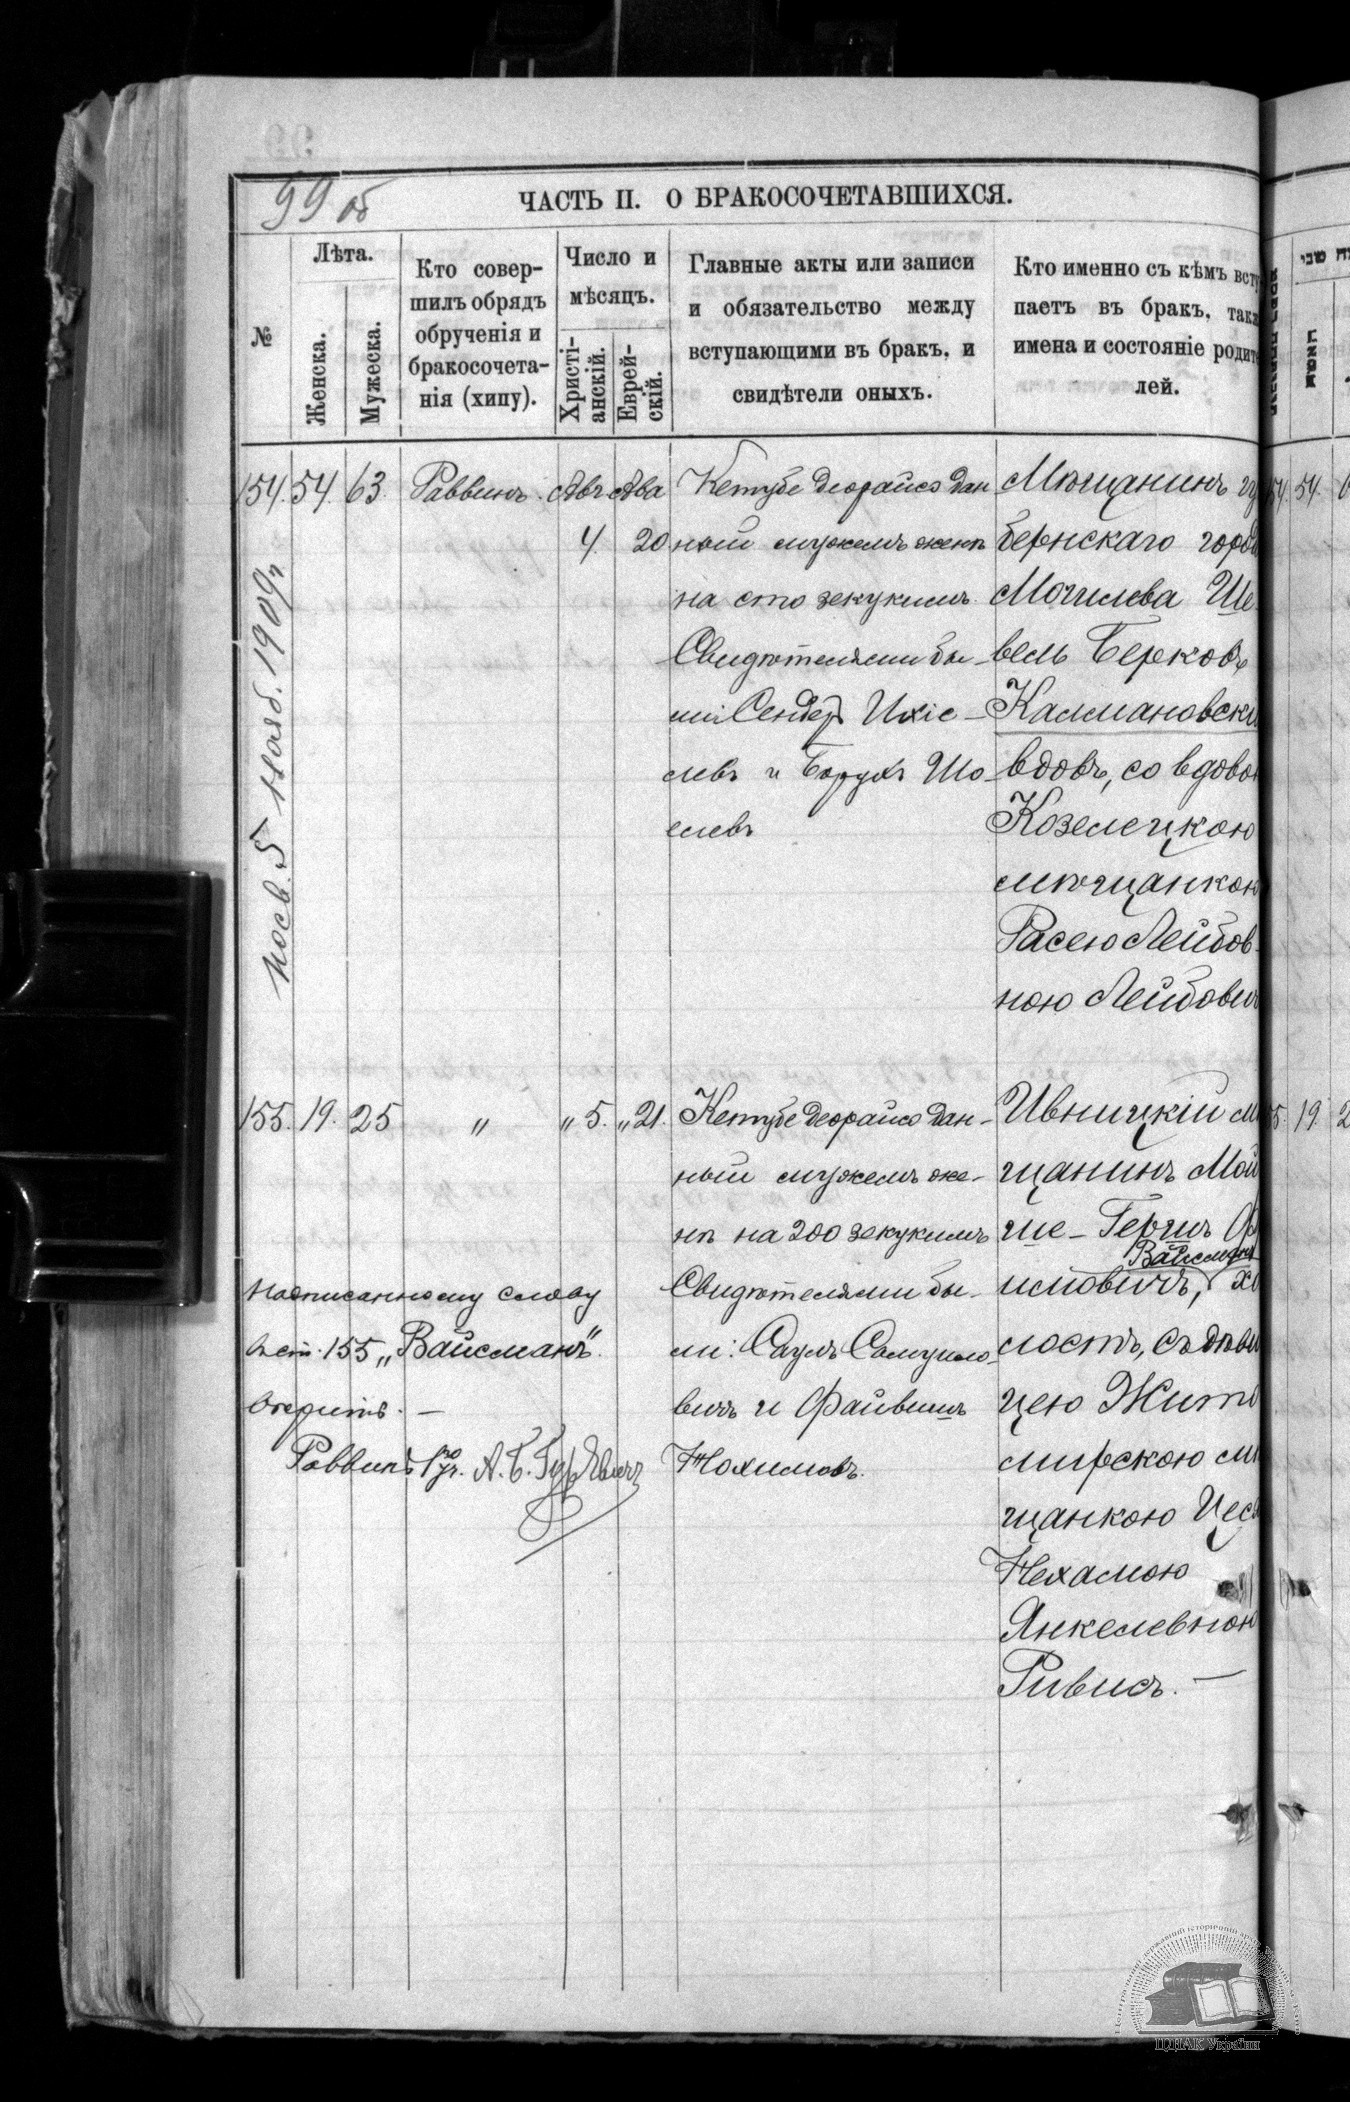 99 об
ЧАСТЬ II. О БРАКОСОЧЕТАВШИХСЯ.
№
Лѣта.
Женска.
Мужеска.
Кто совер-
шилъ обрядъ
обрученія и
бракосочета-
нія (хипу).
Число и
мѣсяцъ.
Христі-
анскій.
Еврей-
скій.
Главные акты или записи
и обязательство между
вступающими въ бракъ, и
свидѣтели оныхъ.
Кто именно съ кѣмъ всту
паетъ въ бракъ, такж
имена и состояніе родите
лей.
154. 54. 63. Раввинъ. Авг. Ава
4. 20
Кетубе деорайсо дан
ный мужемъ женѣ
на сто зекукимъ
Свидѣтелями бы-
ли: Сендеръ Ихіе-
левъ и Борухъ Шо-
елевъ
Мѣщанинъ гу
бернскаго города
Могилева Ше-
вель Берковъ
Калмановскі
вдовъ, со вдовою
Козелецкою
мѣщанкою
Расею Лейбов-
ною Лейбович
посв. 5 Нояб. 1909 г
155. 19. 25 " " 5. " 21.
Кетубе деорайсо дан-
ный мужемъ же-
нѣ на 200 зекукимъ
Свидѣтелями бы-
ли: Саулъ Самуило-
вичъ и Файвишъ
Нохимовъ.
Ивницкій мѣ
щанинъ Мой
ше-Гершъ
Вайсманъ
имовичъ, хо
лостъ, съ дѣви
цею Жито
мирскою мѣ
щанкою Цеся
Нехамою
Янкелевною
Ривисъ. —
Надписанному слову
въ ст. 155 „Вайсманъ".
вѣрить. —
Раввинъ А. Б. Гуревичъ
54. 54.
55. 19. 2
האשה
ЦДІАК України